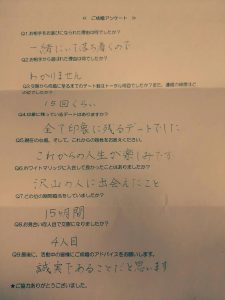 ＜ ご成婚アンケート ＞
Q1.お相手をお選びになられた理由は何でしたか？
一緒にいて落ち着くので
Q2.お相手から選ばれた理由は何でしたか？
わかりません
15回くらい
Q4.印象に残っているデートはありますか？
全て印象に残るデートでした
Q5.現在のお気持、そして、これからの抱負をお教えください。
これからの人生が楽しみです
Q6.ホワイトマリッジに入会して良かったことはありましたか？
沢山の人に出会えたこと
Q7.どの位の期間婚活をしていましたか？
1年5ヶ月間
Q8.お見合い何人目で交際になりましたか？
4人目
Q9.最後に、活動中の皆様にご成婚のアドバイスをお願いします。
誠実であることだと思います
★ご協力ありがとうございました。